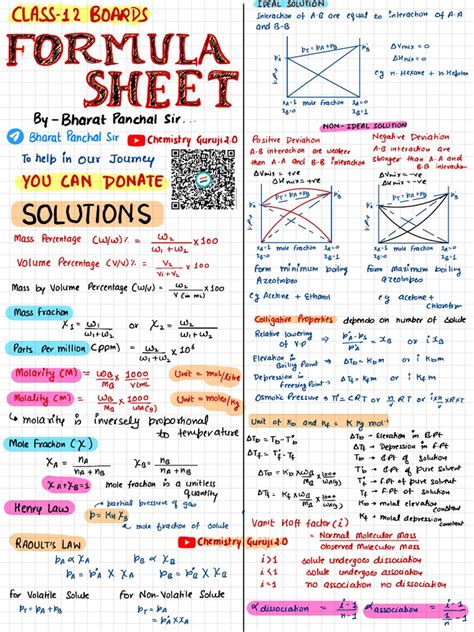 CLASS-12 BOARDS
FORMULA
SHEET
By - Bharat Panchal Sir...
Bharat Panchal Sir
Chemistry Guruji 2.0
To help in our Journey
YOU CAN DONATE
SOLUTIONS
Mass Percentage (w/w)% = ω₂/(ω₁+ω₂) × 100
Volume Percentage (V/V)% = V₂/(V₁+V₂) × 100
Mass by Volume Percentage (w/v) = ω₂/V (in mL) × 100
Mass Fraction
X₁ = ω₁/(ω₁+ω₂) or X₂ = ω₂/(ω₁+ω₂)
Parts Per million (ppm) = ω₂/(ω₁+ω₂) × 10⁶
Molarity (M) = ωB/MB × 1000/V(mL) Unit = mol/litre
Molality (m) = ωB/MB × 1000/WA(g) Unit = moles/kg
molarity is inversely proportional
to temperature
Mole Fraction (χ)
XA = nA/(nA+nB) XB = nB/(nA+nB)
XA+XB=1 mole fraction is a unitless
quantity
Henry Law
partial pressure of gas
p = KH XB
mole fraction of solute
RAOULT'S LAW
Chemistry Guruji 2.0
PA ∝ XA PB ∝ XB
PA = P°A XA PB = P°B × XB
For Volatile Solute For Non-Volatile Solute
PT = PA + PB PT = PA
= P°A XA
IDEAL SOLUTION
Interaction of A-B are equal to interaction of A-A
and B-B
PT = PA + PB
ΔVmix = 0
ΔHmix = 0
eg n-Hexane + n-Heptan
mole fraction
NON-IDEAL SOLUTION
Positive Deviation Negative Deviation
A-B interaction are weaker A-B interaction are
than A-A and B-B interaction stronger than A-A and
B-B interaction
ΔVmix = +ve ΔVmix = -ve
ΔHmix = +ve ΔHmix = -ve
mole fraction mole fraction
form minimum boiling Form maximum boiling
Azeotropes azeotropes
eg Acetone + Ethanol eg acetone +
Colligative Properties depends on number of solute
Relative lowering
of V.P
= XB or iXB
Elevation in
Boiling Point → ΔTb = Kb m or iKb m
Depression in
freezing Point → ΔTf = Kf m or iKf m
Osmotic Pressure π = CRT or n/V RT or i×n/V×RT
Unit of Kb and Kf = K Kg mol⁻¹
ΔTb = Tb - T°b
ΔTf = T°f - Tf
ΔTb = Kb ωB/MB × 1000/WA(g)
ΔTf = Kf ωB/MB × 1000/WA(g)
ΔTb → Elevation in B.Pt
ΔTf → Depression in F.Pt
Tb → B.Pt of solution
T°b → B.Pt of pure solvent
T°f → F.Pt of pure solvent
Tf → F.Pt of solution
Kb → molal elevation
constant
Kf → molal depression
constant
Vant Hoff factor (i)
= Normal molecular mass/Observed Molecular mass
i>1 solute undergoes dissociation
i<1 solute undergoes association
i=1 no association no dissociation
α dissociation = (i-1)/(n-1) α association = (i-1)/(1/n-1)